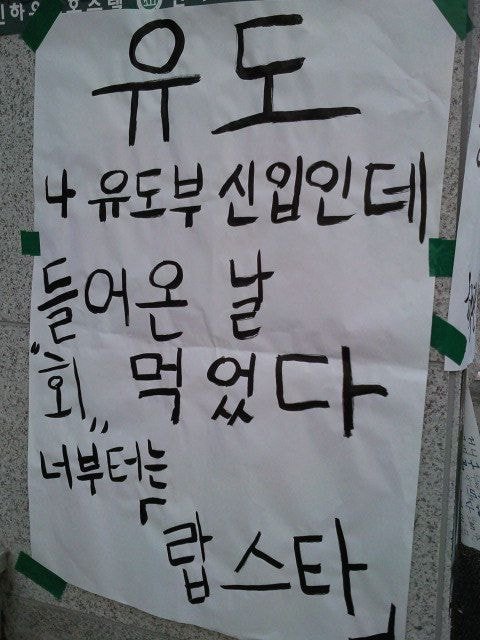 유도
나 유도부 신입인데
들어온 날
"회" 먹었다
너부터는
랍스타